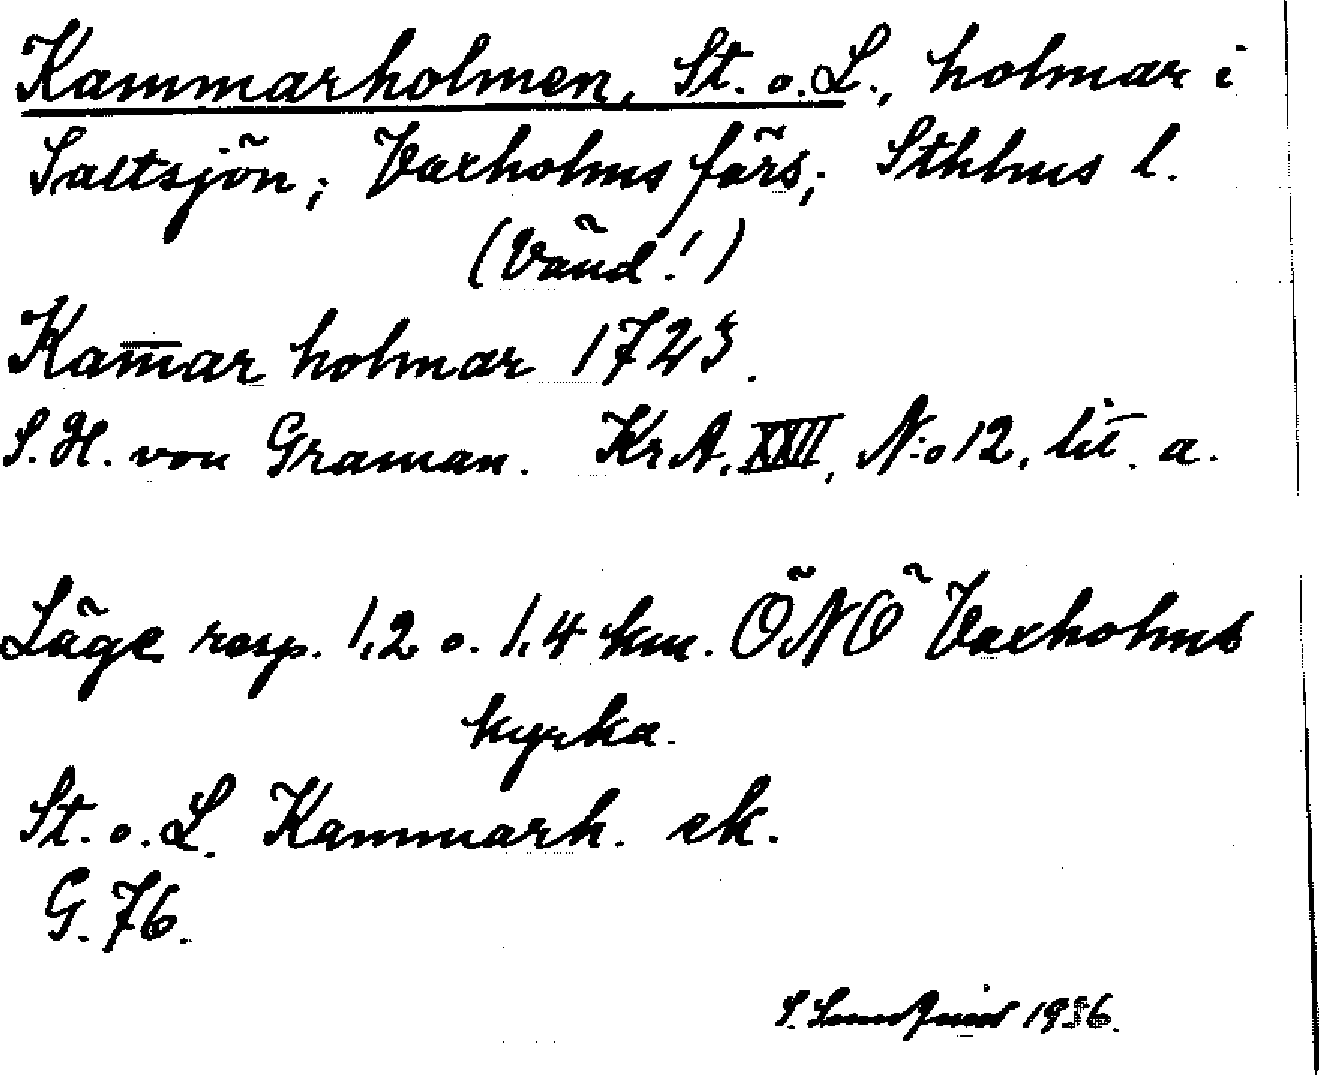 Kammarholmen, St. o. L., holmar i
Saltsjön; Vaxholms förs; Sthlms l.
(Vänd!)
Kam̄ar holmar 1723.
S. H. von Graman. KrA. XXII, N:o 12, lit. a.
Läge resp. 1,2 o. 1,4 km. ÖNÖ Vaxholms
kyrka.
St. o. L. Kammarh. ek.
G. 76.
S. 1936.